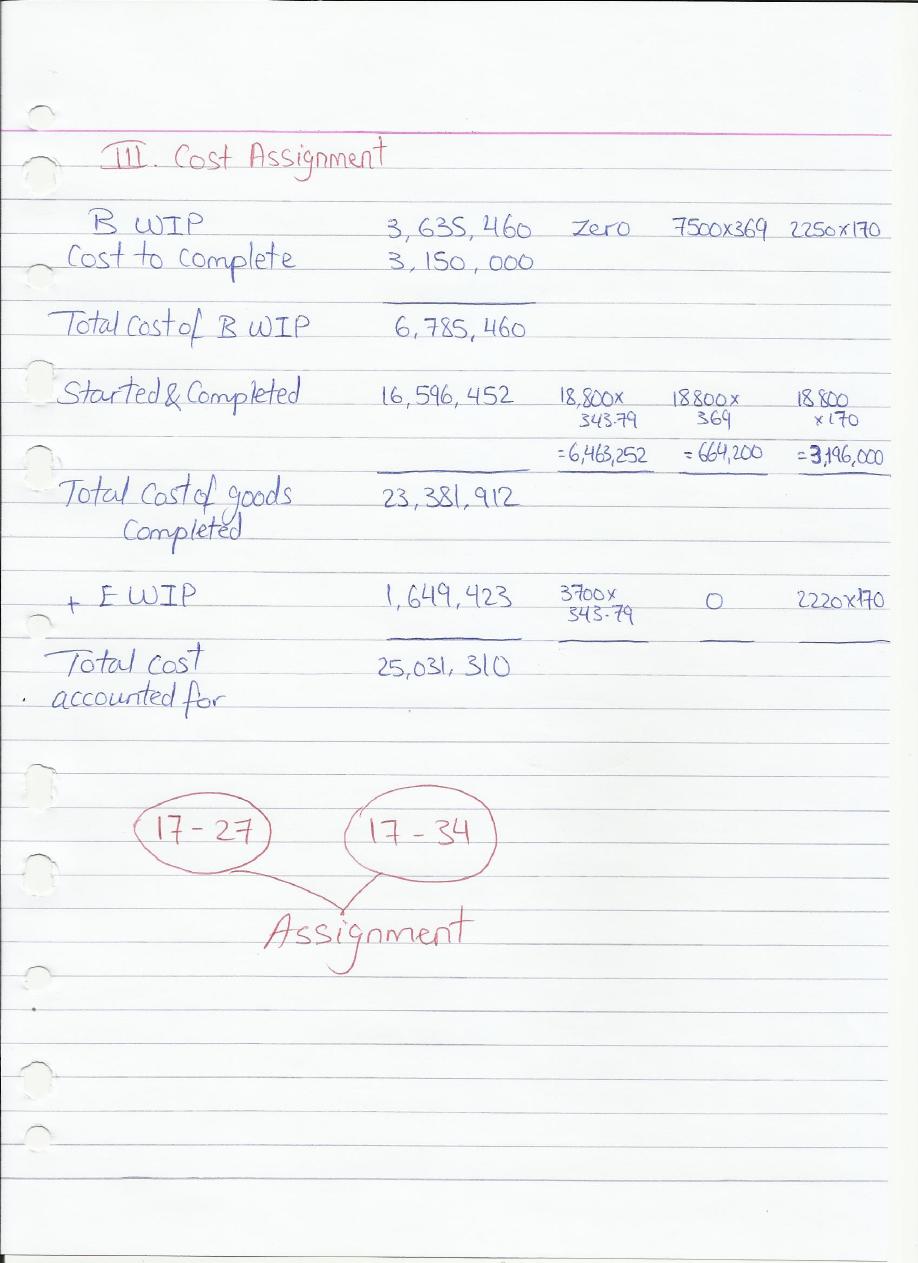 III. Cost Assignment
B WIP 3,635,460 Zero 7500x369 2250x170
Cost to complete 3,150,000
Total Cost of B WIP 6,785,460
Started & Completed 16,596,452 18,800x 18800x 18800
343.79 369 x170
=6,463,252 =664,200 =3,196,000
Total Cost of goods 23,381,912
Completed
+ E WIP 1,649,423 3700x 0 2220x170
343.79
Total Cost 25,031,310
accounted for
17-27 17-34
Assignment